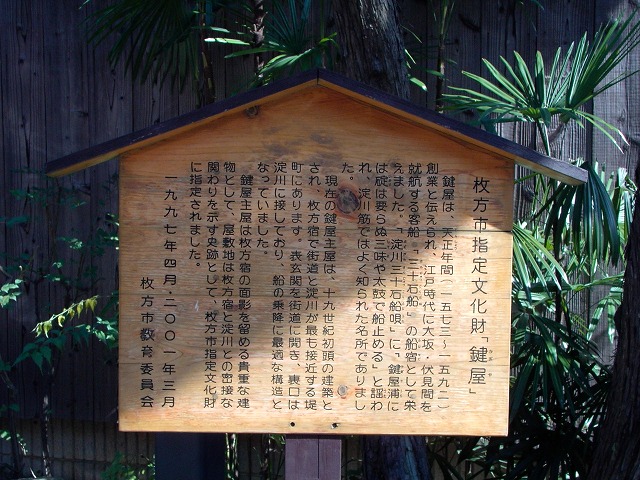 枚方市指定文化財「鍵屋」
かぎや
鍵屋は、天正年間（一五七三〜一五九二）
創業と伝えられ、江戸時代に大坂・伏見間を
就航する客船「三十石船」の船宿として栄
えました。「淀川三十石船唄」に「鍵屋浦に
は碇は要らぬ三味や太鼓で船止める」と謡わ
れ、淀川筋ではよく知られた名所でありまし
た。
現在の鍵屋主屋は、十九世紀初頭の建築と
され、枚方宿で街道と淀川が最も接近する堤
町にあります。表玄関を街道に開き、裏口は
淀川に接しており、船の乗降に最適な構造と
なっていました。
鍵屋主屋は枚方宿の面影を留める貴重な建
物として、屋敷地は枚方宿と淀川との密接な
関わりを示す史跡として、枚方市指定文化財
に指定されました。
一九九七年四月・二〇〇一年三月
枚方市教育委員会